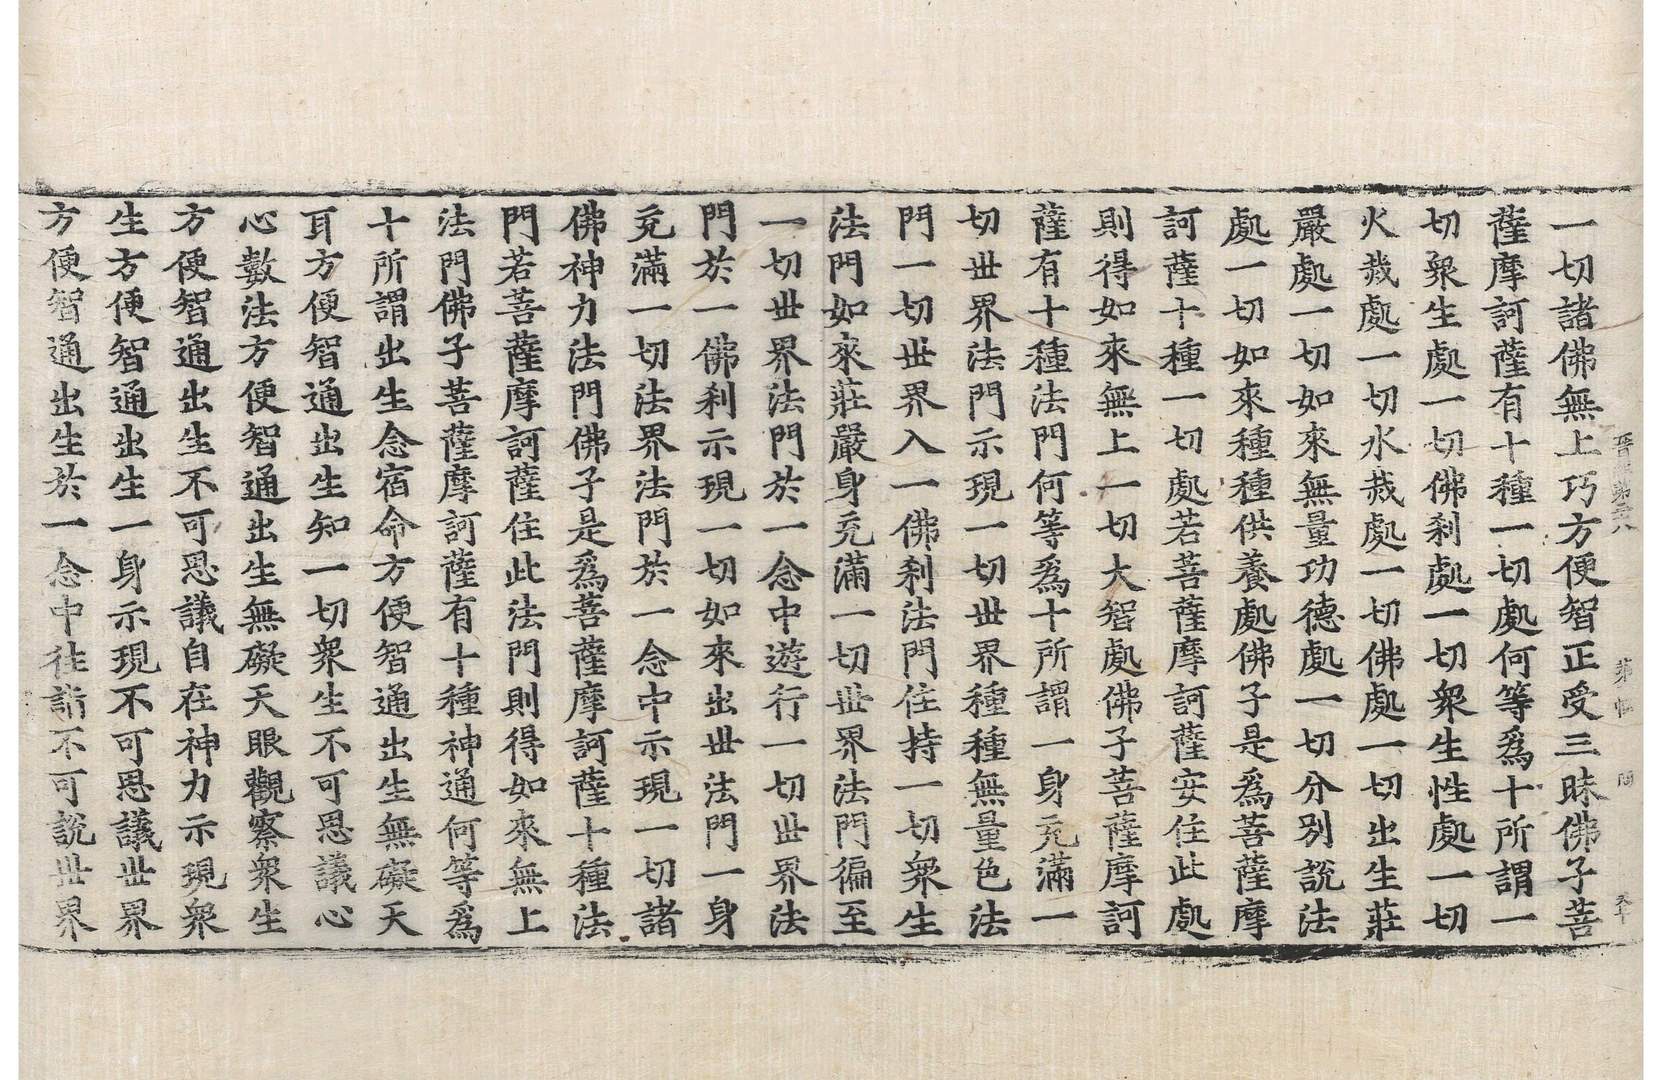 一切諸佛無上巧方便智正受三昧佛子菩
薩摩訶薩有十種一切處何等爲十所謂一
切衆生處一切佛剎處一切衆生性處一切
火烖處一切水烖處一切佛處一切出生莊
嚴處一切如來無量功德處一切分別說法
處一切如來種種供養處佛子是爲菩薩摩
訶薩十種一切處若菩薩摩訶薩安住此處
則得如來無上一切大智處佛子菩薩摩訶
薩有十種法門何等爲十所謂一身充滿一
切世界法門示現一切世界種種無量色法
門一切世界入一佛剎法門住持一切衆生
法門如來莊嚴身充滿一切世界法門徧至
一切世界法門於一念中遊行一切世界法
門於一佛剎示現一切如來出世法門一身
充滿一切法界法門於一念中示現一切諸
佛神力法門佛子是爲菩薩摩訶薩十種法
門若菩薩摩訶薩住此法門則得如來無上
法門佛子菩薩摩訶薩有十種神通何等爲
十所謂出生念宿命方便智通出生無礙天
耳方便智通出生知一切衆生不可思議心
心數法方便智通出生無礙天眼觀察衆生
方便智通出生不可思議自在神力示現衆
生方便智通出生一身示現不可思議世界
方便智通出生於一念中往詣不可說世界